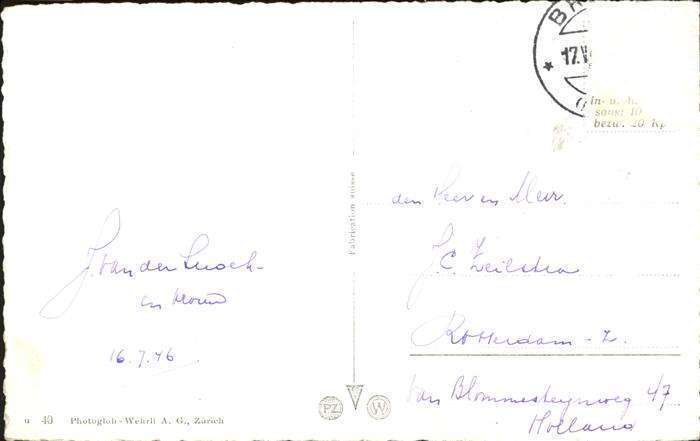 BR
17.V
in- u. A.
sonst 10
bezw. 20 Rp.
Fabrication suisse
den Heer en Mevr.
J.C. Zeilstra
Rotterdam - Z.
van Blommesteynweg 47
Holland
J. van der
en
16.7.46
u 40 Photoglob-Wehrli A. G., Zürich
PZ W